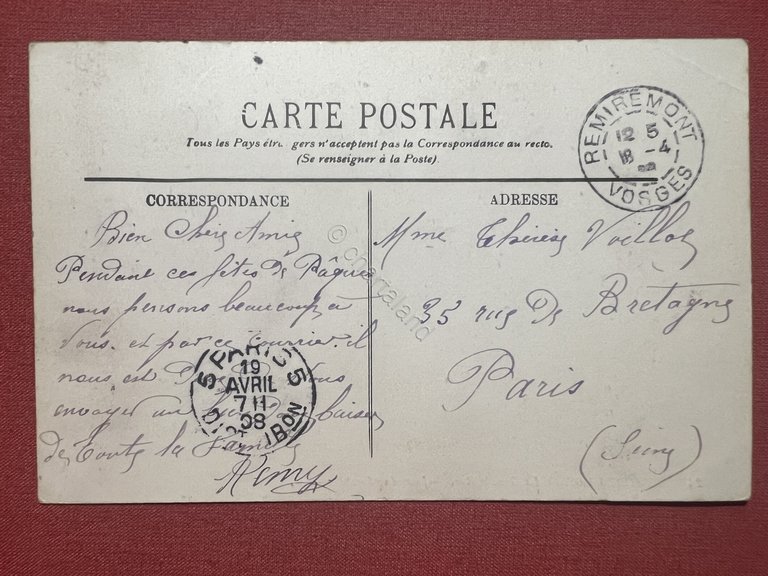 CARTE POSTALE
Tous les Pays étra gers n'acceptent pas la Correspondance au recto.
(Se renseigner à la Poste).
REMIREMONT
12 5
18 -4
VOSGES
CORRESPONDANCE
ADRESSE
Bien Chers Amis
Pendant ces fêtes de Pâques
nous pensons beaucoup à
Vous et par ce courrier il
nous est Vous
envoyer un baiser
de toute la famille
Remy
Mme Thérèse
35 rue De Bretagne
Paris
(Seine)
5 PARIS 5
19
AVRIL
7 11
08
DISTRIBON
© chartaland